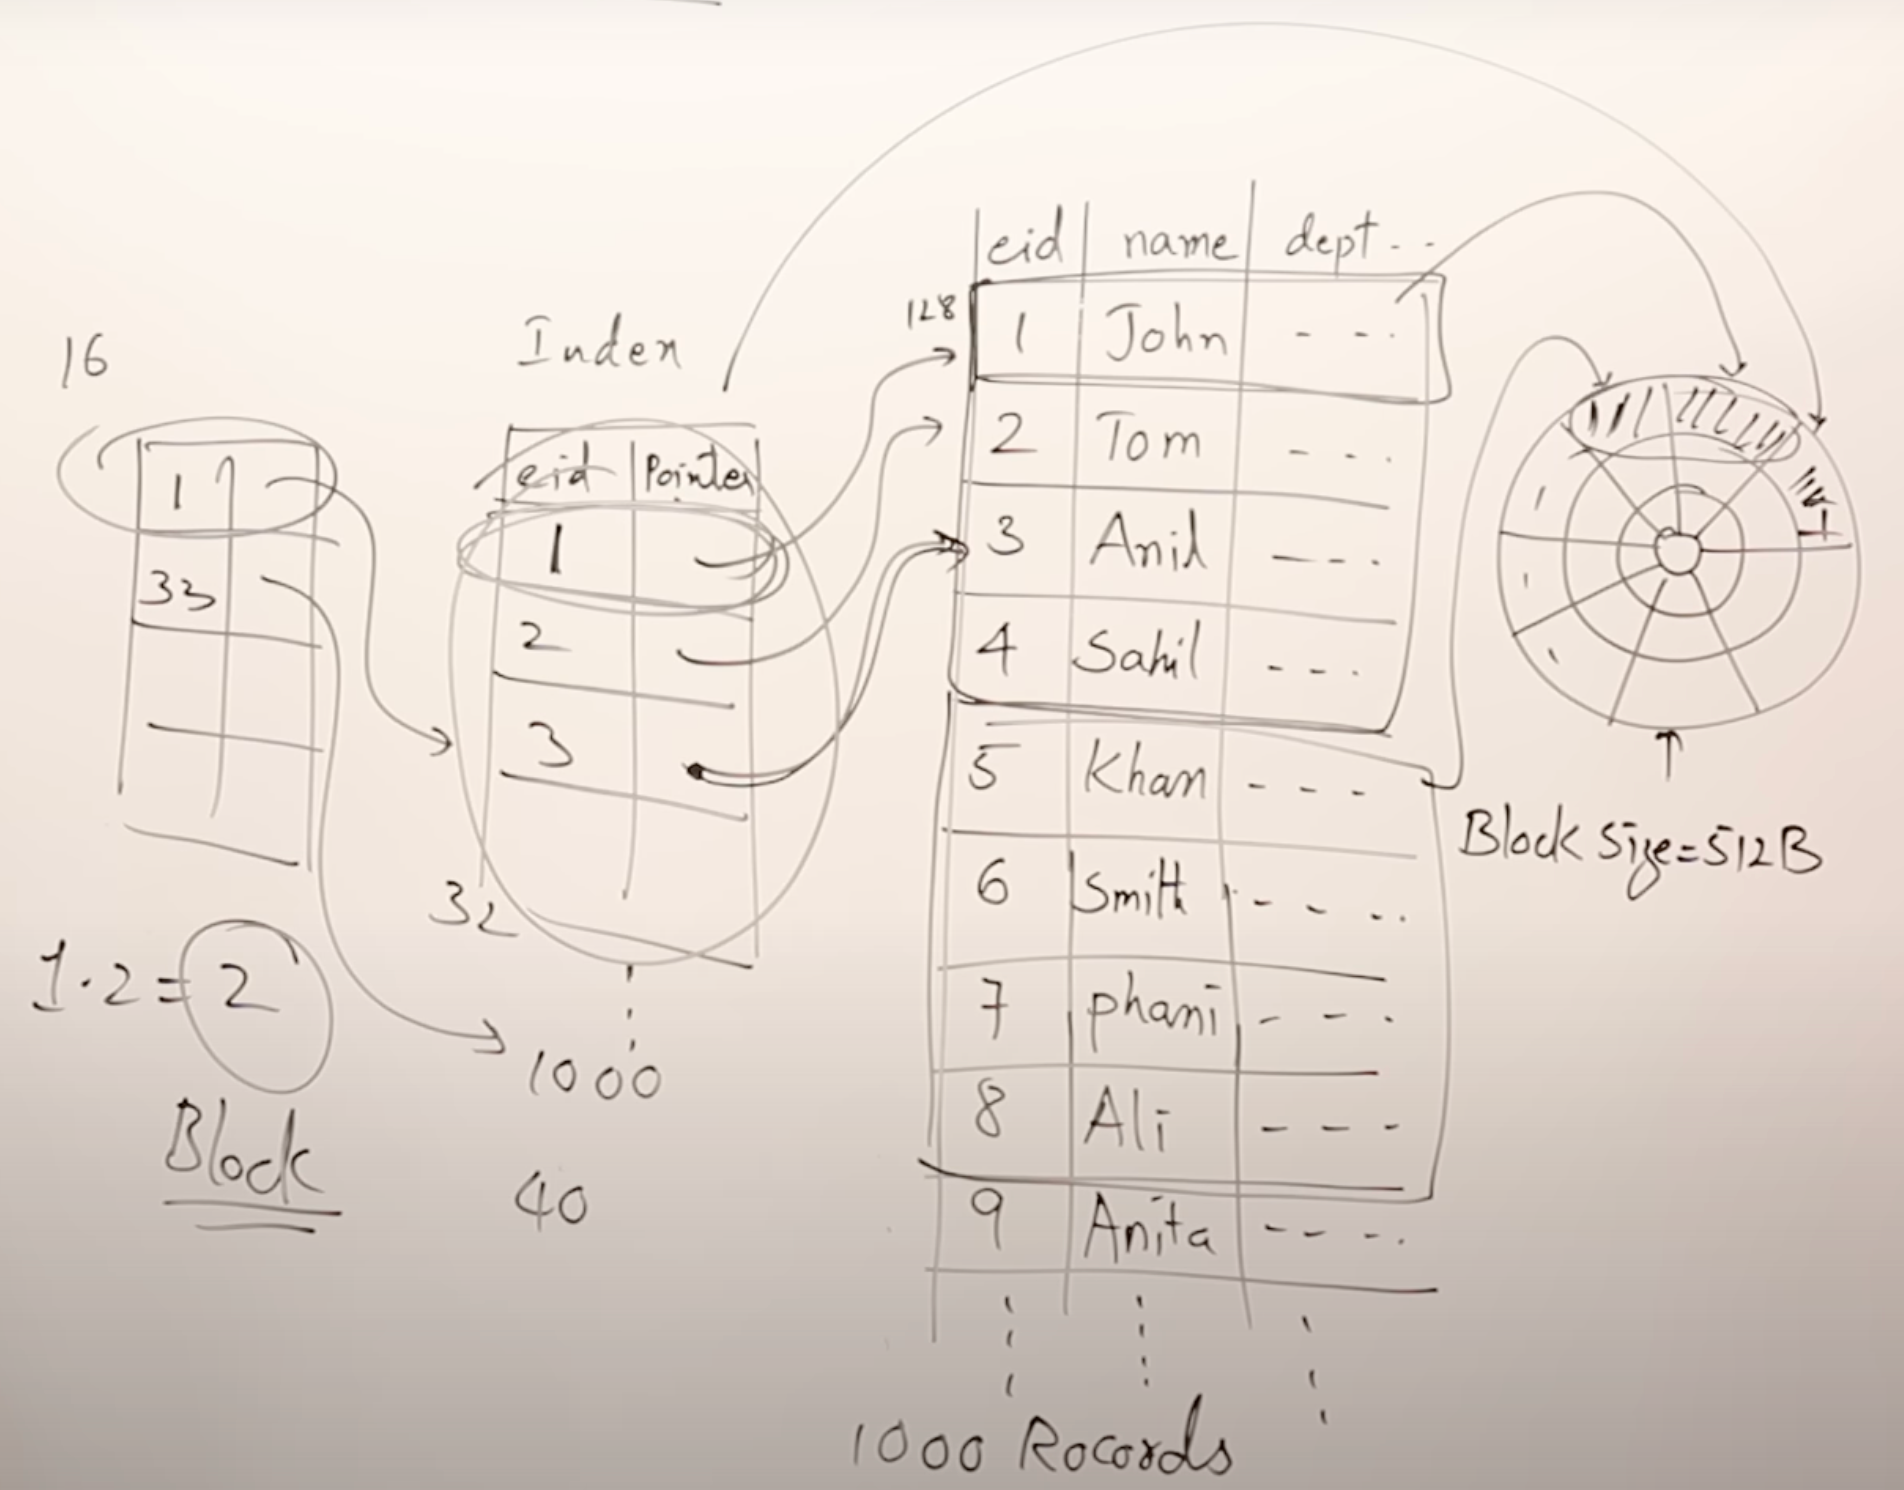 16
1
33
1.2 = 2
Block
Inden
eid Pointer
1
2
3
32
1000
40
128
eid name dept - -
1 John - - -
2 Tom - - -
3 Anil - - -
4 Sahil - - -
5 Khan - - -
6 Smith - - - -
7 phani - - -
8 Ali - - -
9 Anita - - - -
1000 Rocords
Block Size=512B